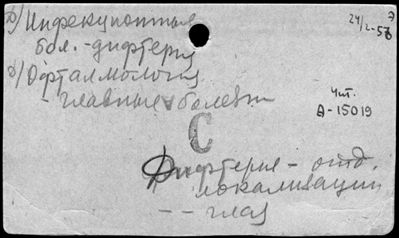 а) Инфекционные
бол. - дифтерия
б) Офтальмология
- главные болезн
24/2-58
Чит.
А-15019
С
Дифтерия - отд.
локализации
- - глаз